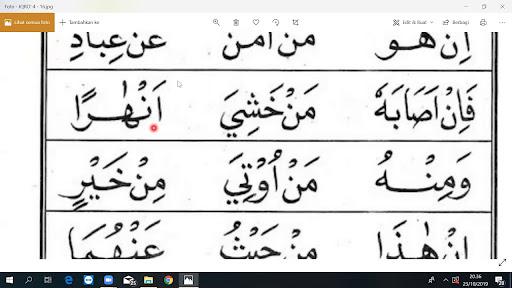 Foto - IQRO' 4 - 16.jpg
Lihat semua foto + Tambahkan ke Edit & Buat Berbagi
اِنْ هُوَ مَنْ اٰمَنَ عَنْ عِبَادِ
فَاِنْ اَصَابَهٗ مَنْ خَشِيَ اَنْهٰرًا
وَمِنْهُ مَنْ اُوْتِيَ مِنْ خَيْرٍ
اِنْ هٰذَا مِنْ حَيْثُ عَنْهُمَا
20.36
25/10/2019